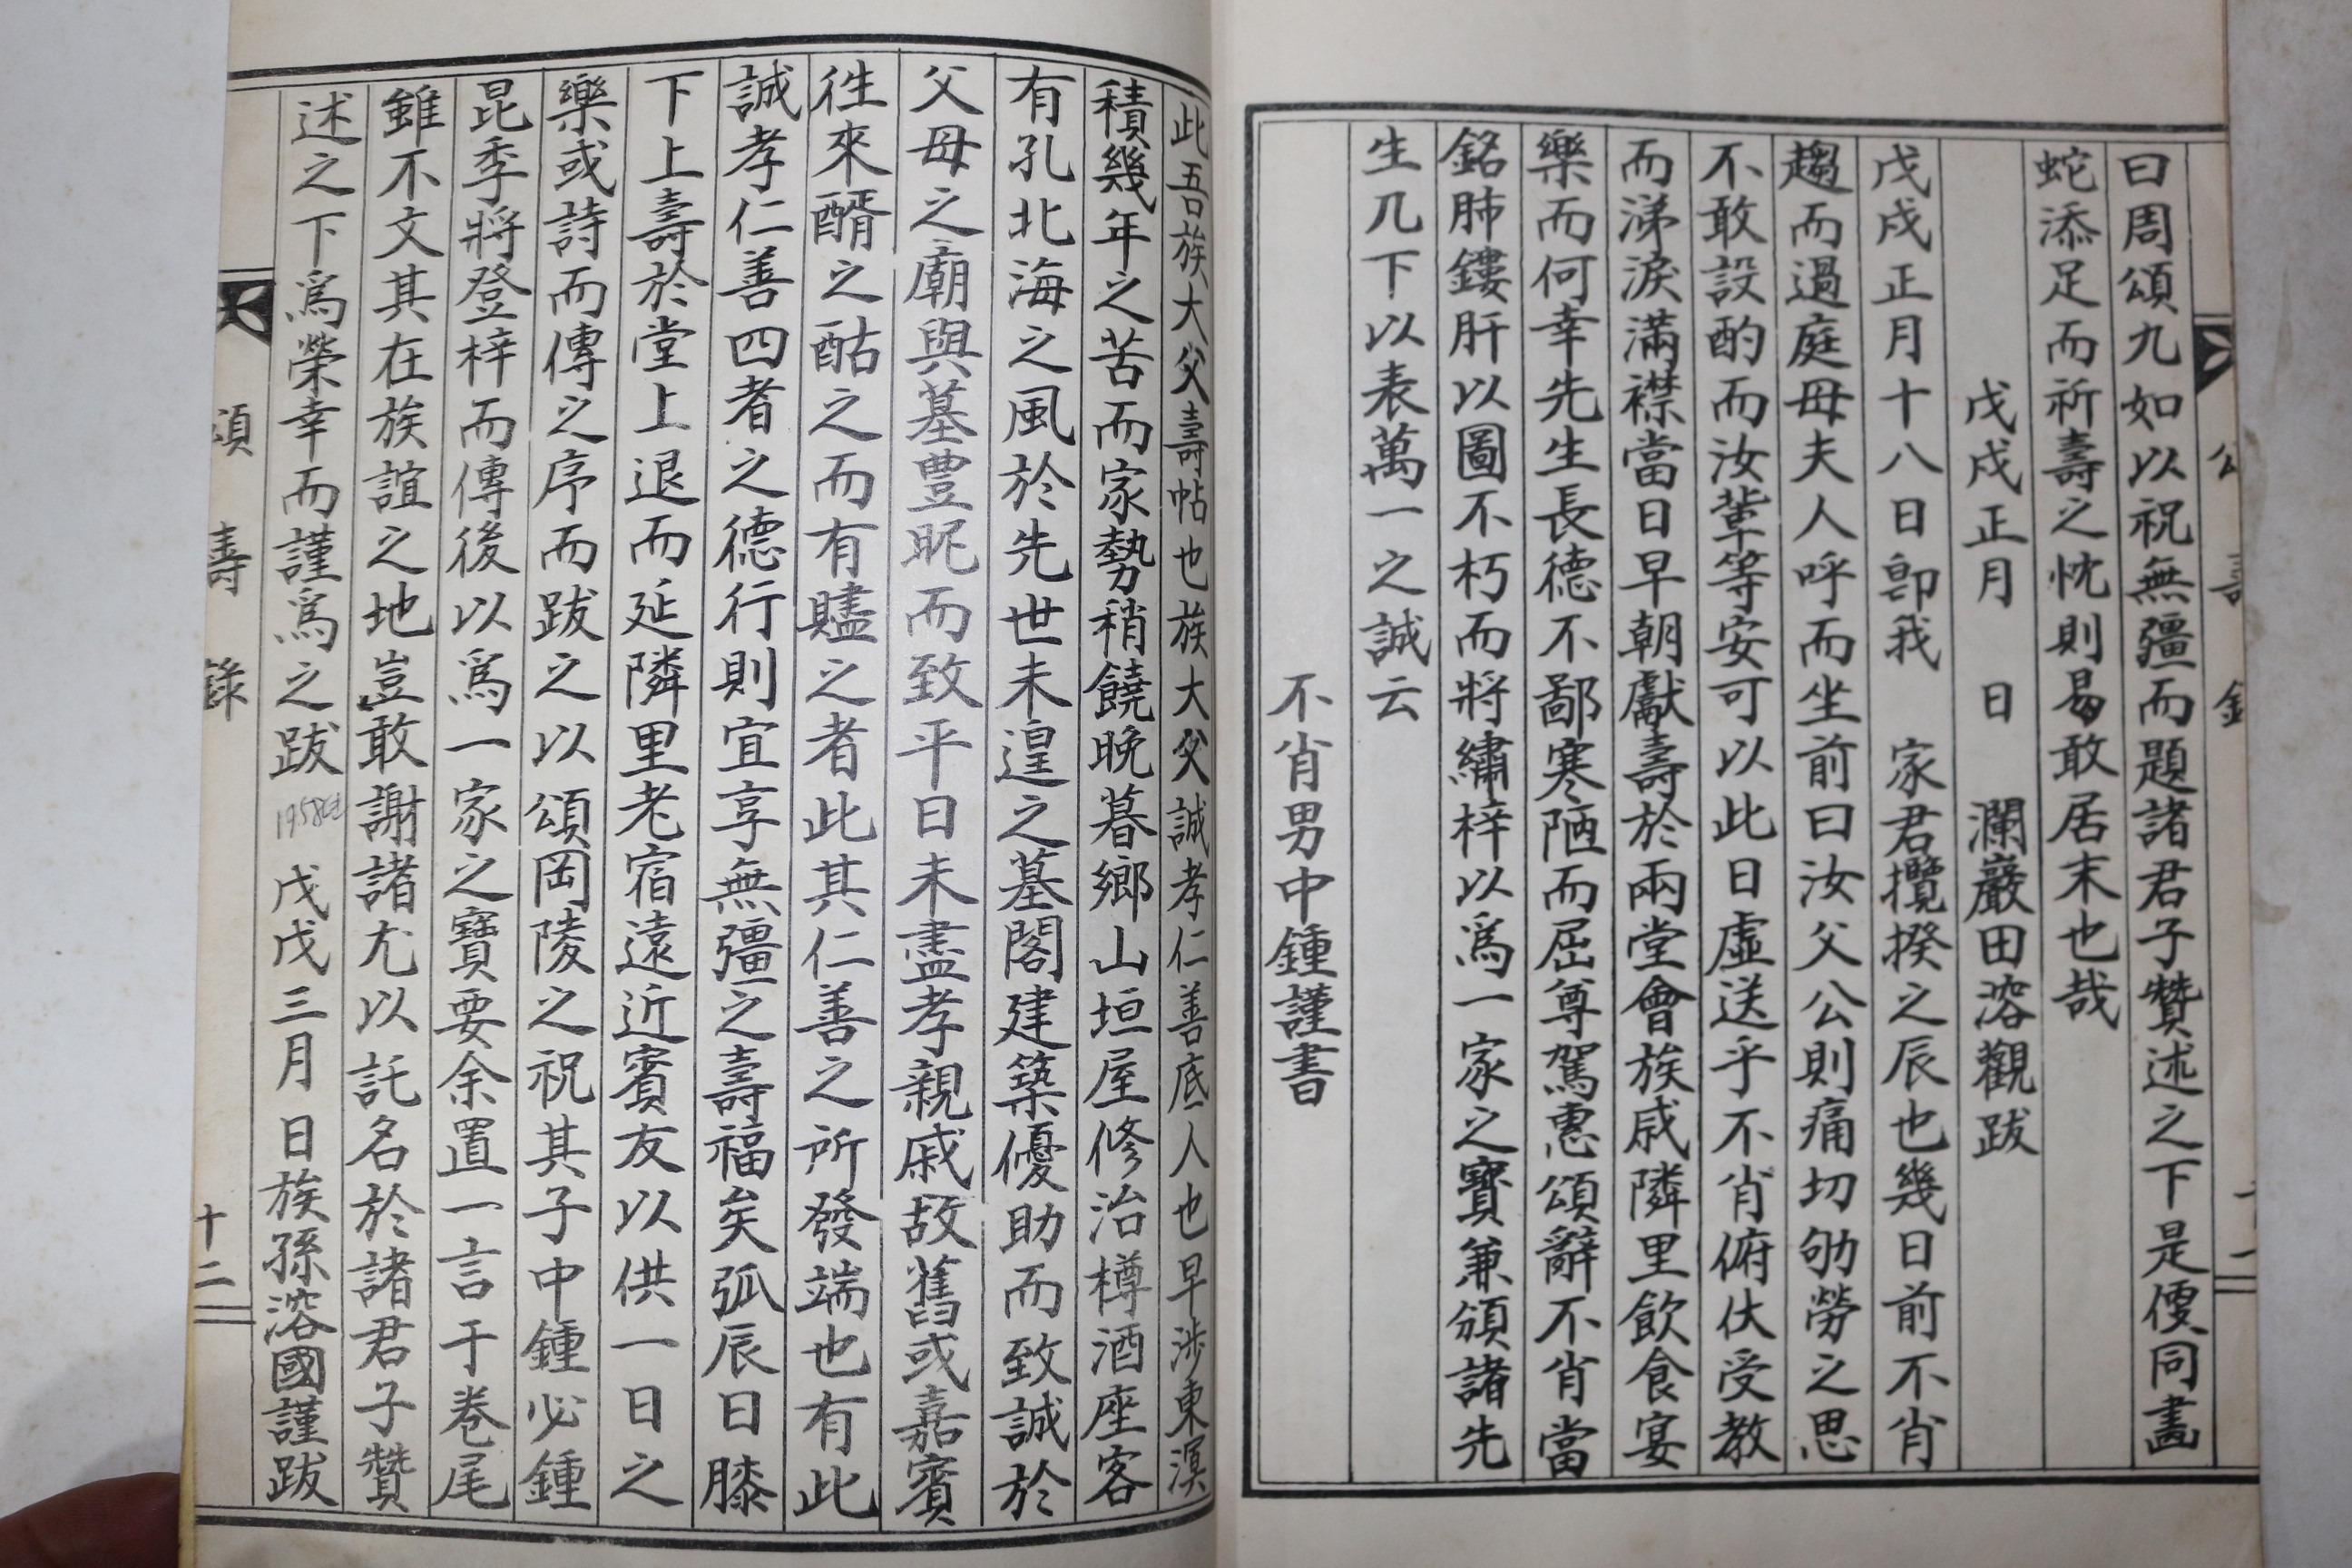 曰周頌九如以祝無疆而題諸君子贊述之下是便同畵
蛇添足而祈壽之忱則曷敢居末也哉
戊戌正月　日　瀾巖田溶觀跋
戊戌正月十八日卽我　家君攬揆之辰也幾日前不肖
趨而過庭母夫人呼而坐前曰汝父公則痛切劬勞之思
不敢設酌而汝輩等安可以此日虛送乎不肖俯伏受教
而涕淚滿襟當日早朝獻壽於兩堂會族戚隣里飮食宴
樂而何幸先生長德不鄙寒陋而屈尊駕惠頌辭不肖當
銘肺鏤肝以圖不朽而將繡梓以爲一家之寶兼頒諸先
生几下以表萬一之誠云
不肖男中鍾謹書
此吾族大父壽帖也族大父誠孝仁善底人也早涉東溟
積幾年之苦而家勢稍饒晚暮鄉山垣屋修治樽酒座客
有孔北海之風於先世未遑之墓閣建築優助而致誠於
父母之廟與墓豊昵而致平日未盡孝親戚故舊或嘉賓
徃來醑之酤之而有贐之者此其仁善之所發端也有此
誠孝仁善四者之德行則宜享無彊之壽福矣弧辰日膝
下上壽於堂上退而延隣里老宿遠近賓友以供一日之
樂或詩而傳之序而跋之以頌岡陵之祝其子中鍾必鍾
昆季將登梓而傳後以爲一家之寶要余置一言于卷尾
雖不文其在族誼之地豈敢謝諸尤以託名於諸君子贊
述之下爲榮幸而謹爲之跋 1958年 戊戌三月　日族孫溶國謹跋
頌壽錄
十二